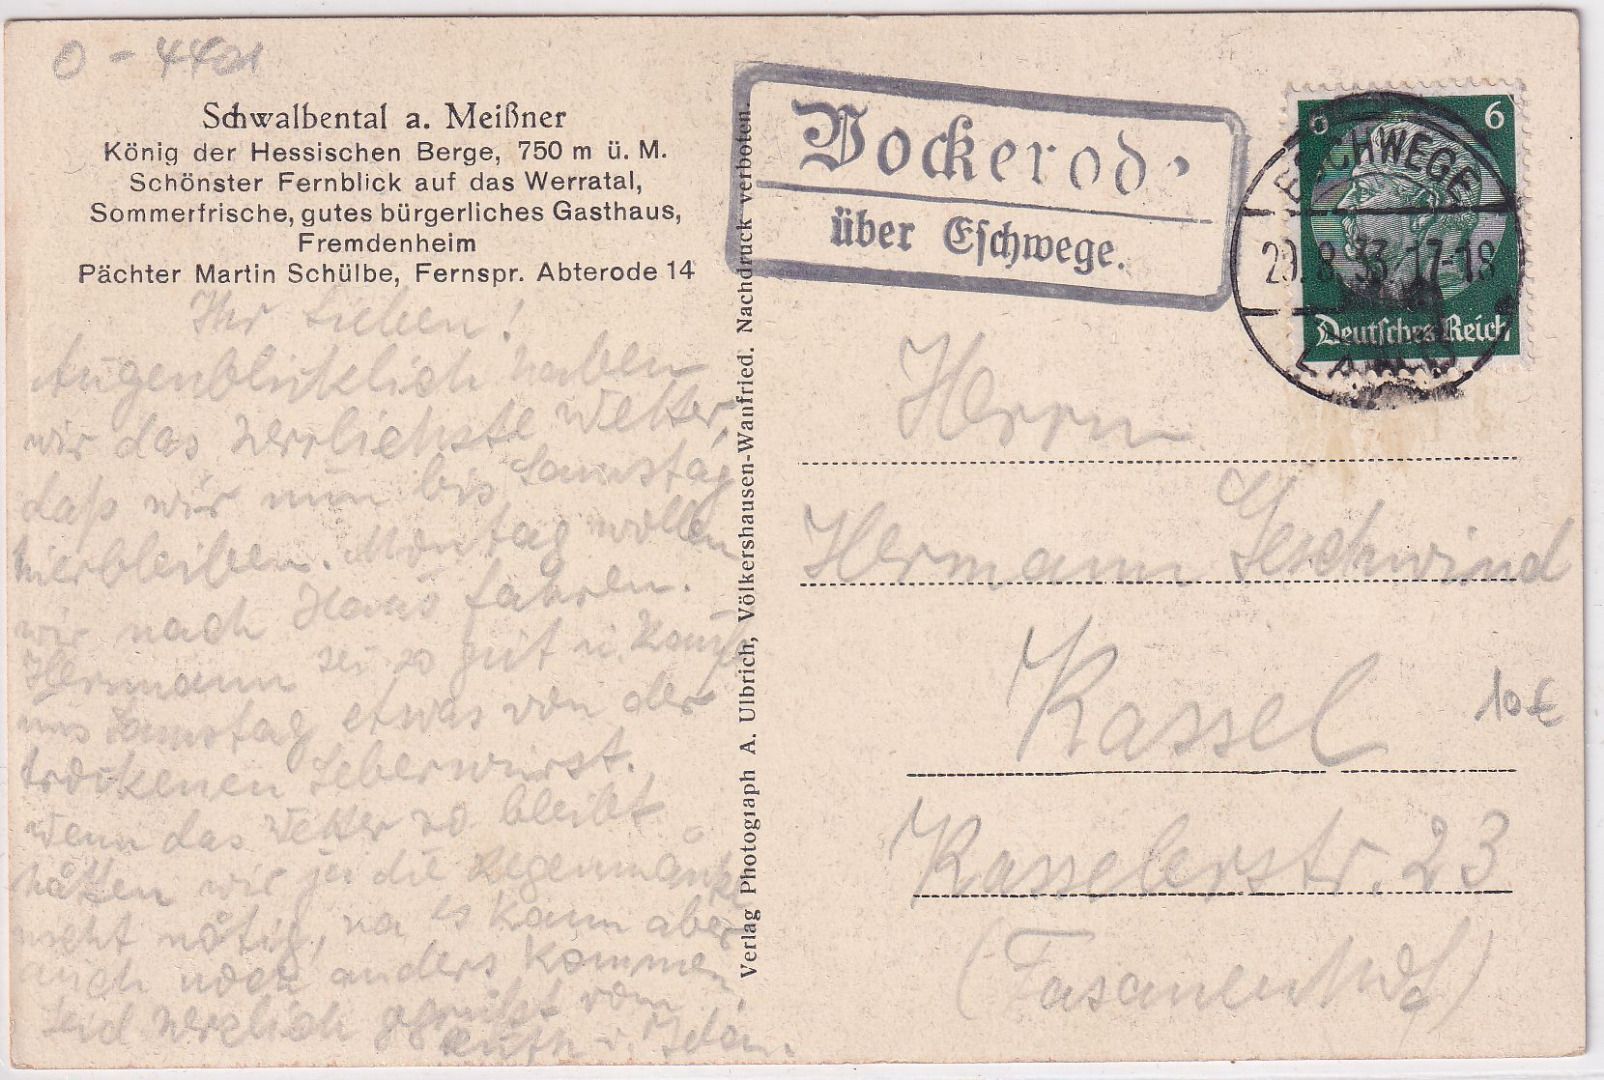 0 - 4401
Schwalbental a. Meißner
König der Hessischen Berge, 750 m ü. M.
Schönster Fernblick auf das Werratal,
Sommerfrische, gutes bürgerliches Gasthaus,
Fremdenheim
Pächter Martin Schülbe, Fernspr. Abterode 14
Ihr Lieben!
Augenblicklich haben
wir das herrlichste Wetter,
daß wir nun bis Samstag
hierbleiben. Montag wollen
wir nach Haus fahren.
Hermann sei so gut u. kauf
uns Samstag etwas von der
trockenen Leberwurst.
Wenn das Wetter so bleibt
hätten wir ja die Regenmäntel
nicht nötig, na es kann aber
auch noch anders kommen,
Seid herzlich gegrüßt von
Ruth u.
Verlag Photograph A. Ulbrich, Völkershausen-Wanfried. Nachdruck verboten.
Vockerod
über Eschwege.
6 6
Deutsches Reich
ESCHWEGE
29.8.33.17-18
Herrn
Hermann Geschwind
Kassel
Kasselerstr. 23
(Fasanenhof)
10 €